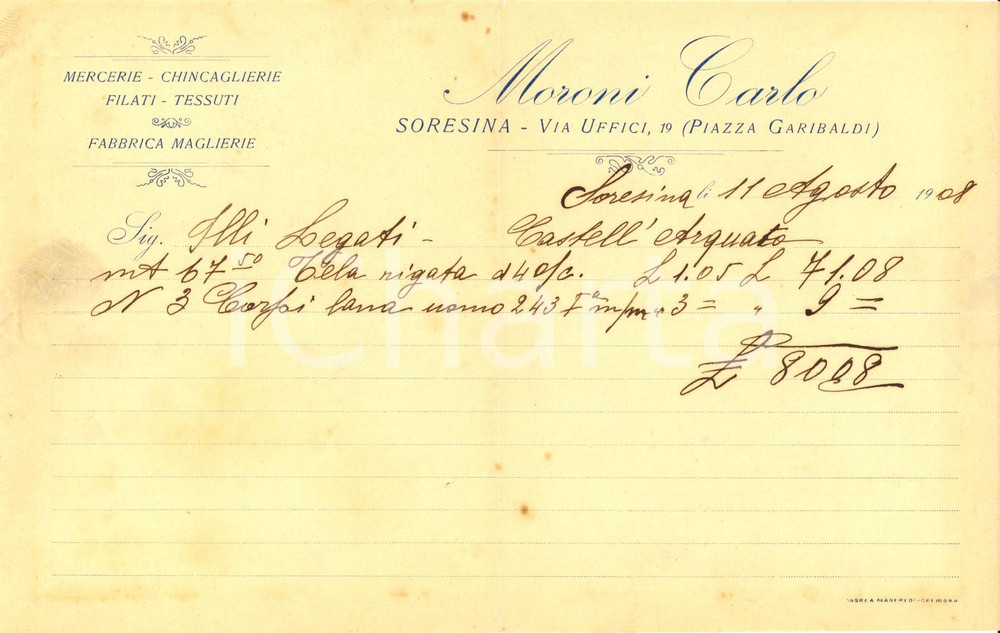 MERCERIE - CHINCAGLIERIE
FILATI - TESSUTI
FABBRICA MAGLIERIE
Moroni Carlo
SORESINA - VIA UFFICI, 19 (PIAZZA GARIBALDI)
Soresina li 11 Agosto 1908
Sig. Flli Legati - Castell' Arquato
mt 67 50 Tela rigata d 40/c. £ 1.05 £ 71.08
N 3 Corpi lana uomo 243 Iª m/m " 3 = " 9 =
£ 80.08
iCharta
ANDREA MANFREDI - CREMONA